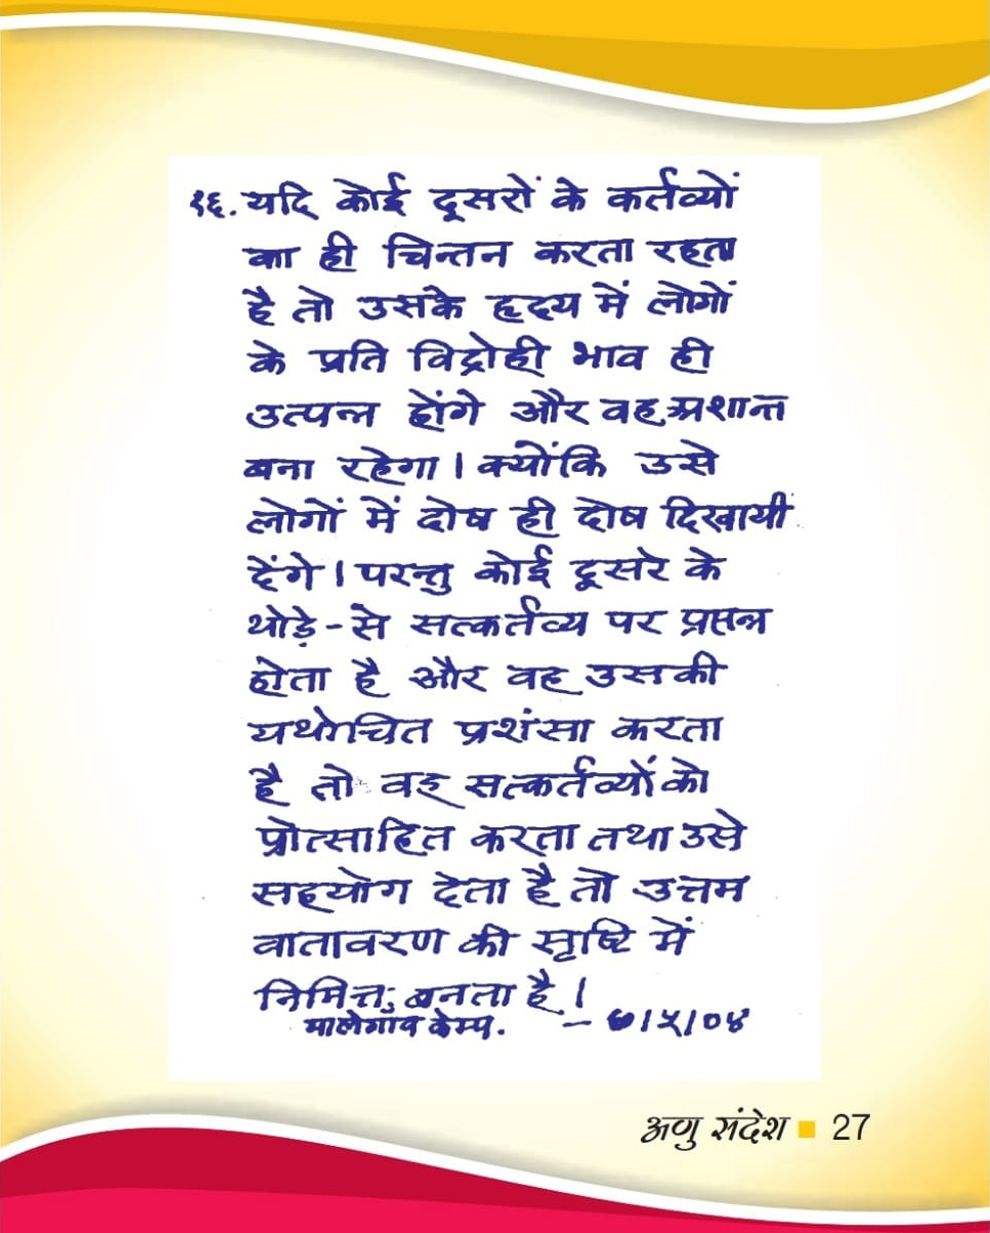 १६. यदि कोई दूसरों के कर्तव्यों
का ही चिन्तन करता रहता
है तो उसके हृदय में लोगों
के प्रति विद्रोही भाव ही
उत्पन्न होंगे और वह अशान्त
बना रहेगा। क्योंकि उसे
लोगों में दोष ही दोष दिखायी
देंगे। परन्तु कोई दूसरे के
थोड़े-से सत्कर्तव्य पर प्रसन्न
होता है और वह उसकी
यथोचित प्रशंसा करता
है तो वह सत्कर्तव्यों को
प्रोत्साहित करता तथा उसे
सहयोग देता है तो उत्तम
वातावरण की सृष्टि में
निमित्त बनता है।
मालेगाँव केम्प. - ७/५/०४
अणु संदेश ■ 27